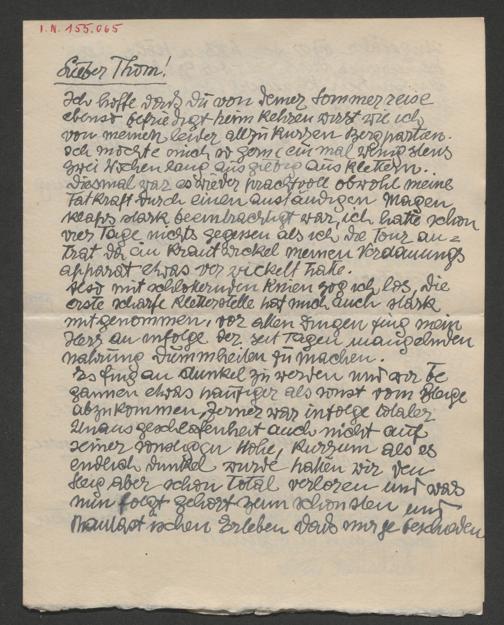 I.N. 155.065
Lieber Thom!
Ich hoffe dass Du von Deiner Sommerreise
ebenso befriedigt heim kehren wirst wie ich
von meinen leider allzu kurzen Bergpartien.
Ich möchte mich so gern einmal wenigstens
zwei Wochen lang ausgiebig ausklettern..
Diesmal war es wieder prachtvoll obwohl meine
Tatkraft durch einen anständigen Magen
stark beeinträchtigt war, ich hatte schon
vier Tage nichts gegessen als ich die Tour an=
trat da ein Krautwickel meinen Verdauungs
apparat etwas verwickelt hatte.
Also mit schlotternden Knien zog ich los, die
erste scharfe Kletterstelle hat mich auch stark
mitgenommen, vor allen Dingen fing mein
Herz an infolge der seit Tagen mangelnden
nahrung Dummheiten zu machen.
Es fing an dunkel zu werden und wir be
gannen etwas häufiger als sonst vom Steige
abzukommen, ferner war infolge totaler
Unausgeschlafenheit auch nicht auf
seiner sonstigen Höhe, kurzum als es
endlich dunkel wurde hatten wir den
Steig aber schon total verloren und was
nun folgt gehört zum schönsten und
phantastischen Erleben das mir je beschieden